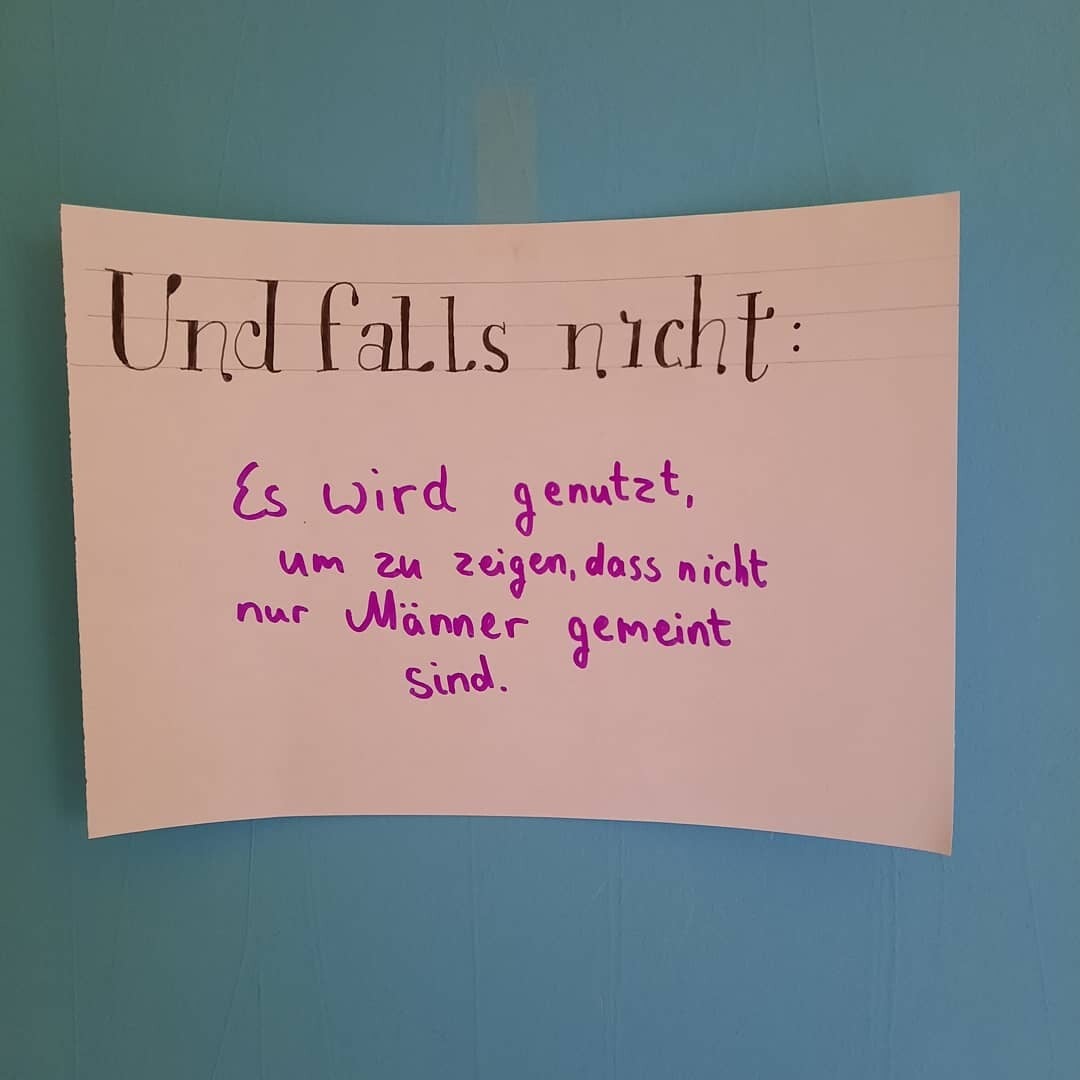 Und falls nicht:
Es wird genutzt,
um zu zeigen, dass nicht
nur Männer gemeint
sind.